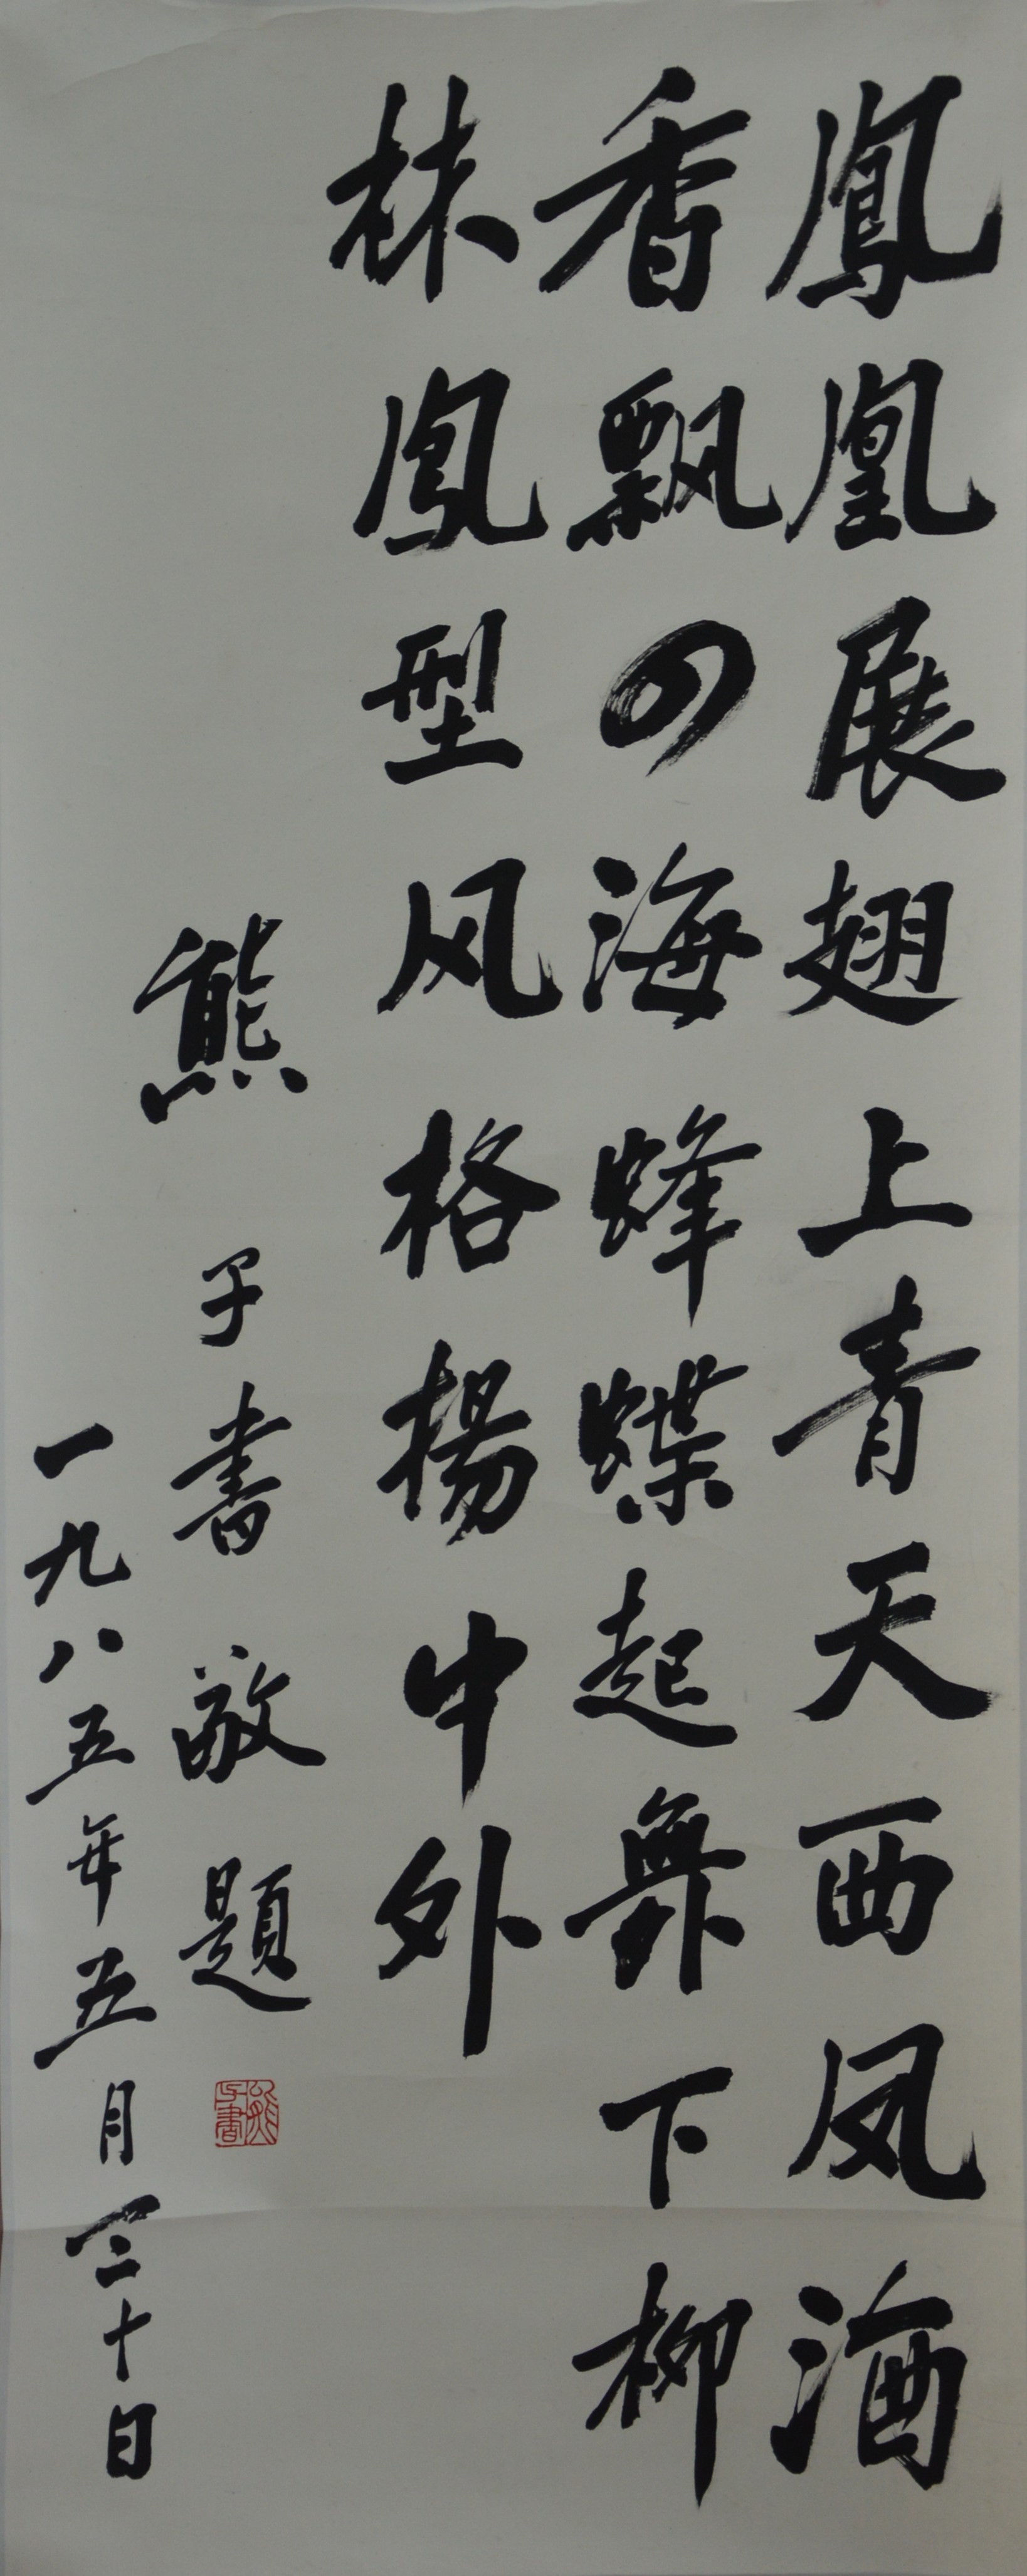 鳳凰展翅上青天西凤酒
香飘四海蜂蝶起舞下柳
林鳳型风格揚中外
熊子書敬題
一九八五年五月三十日
熊子書